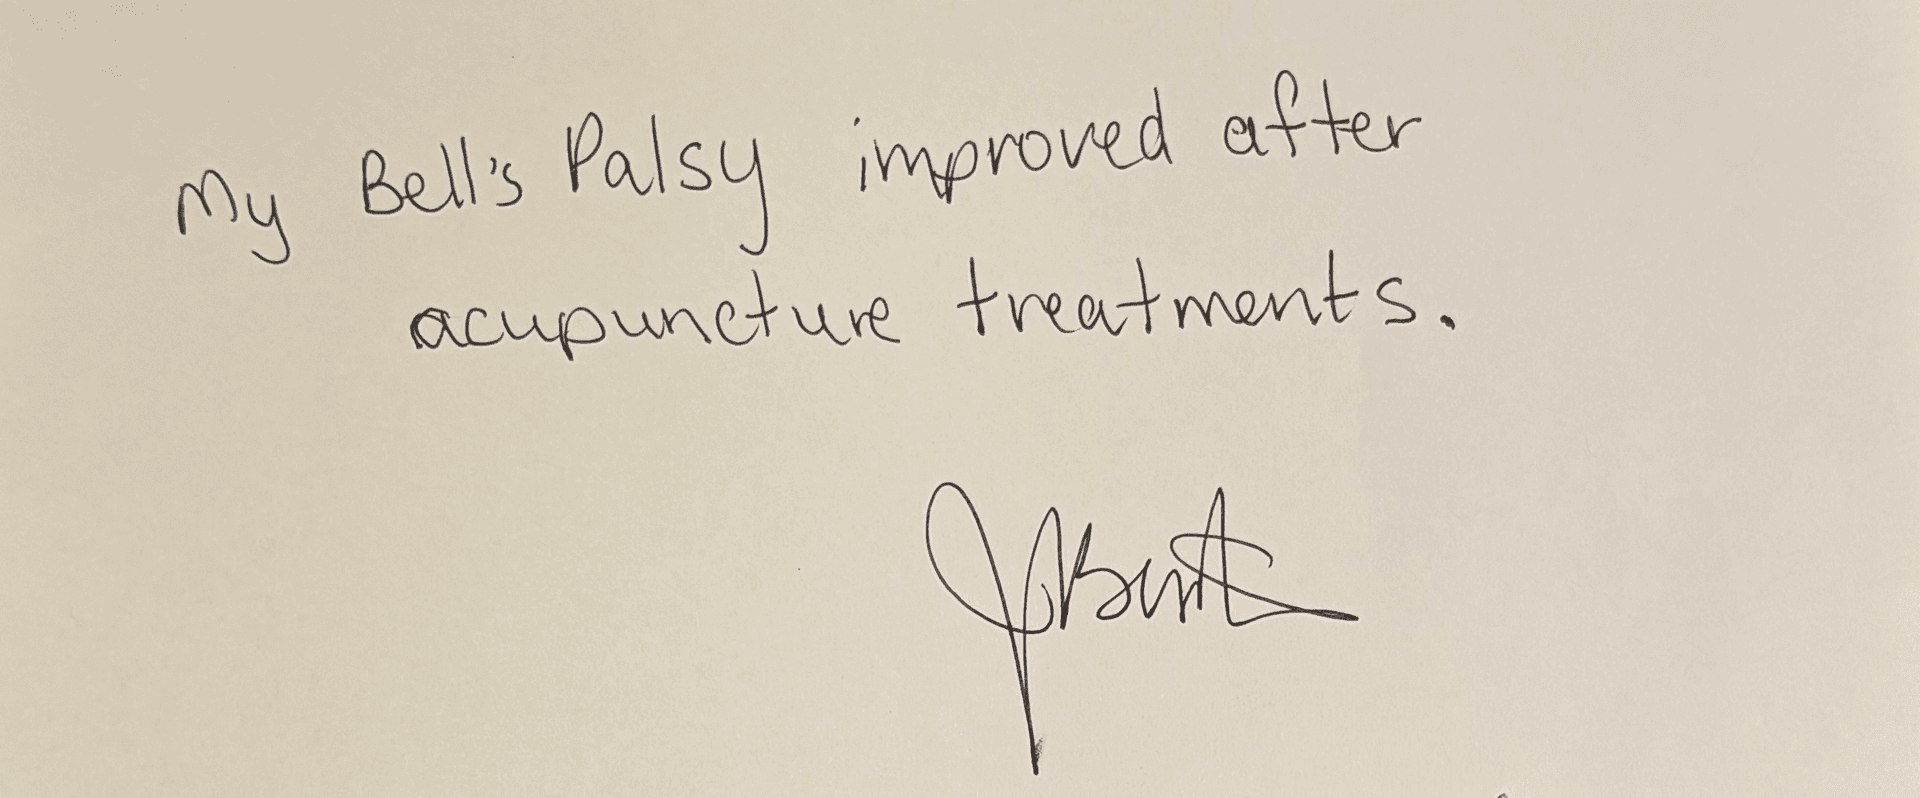 My Bell's Palsy improved after
acupuncture treatments.